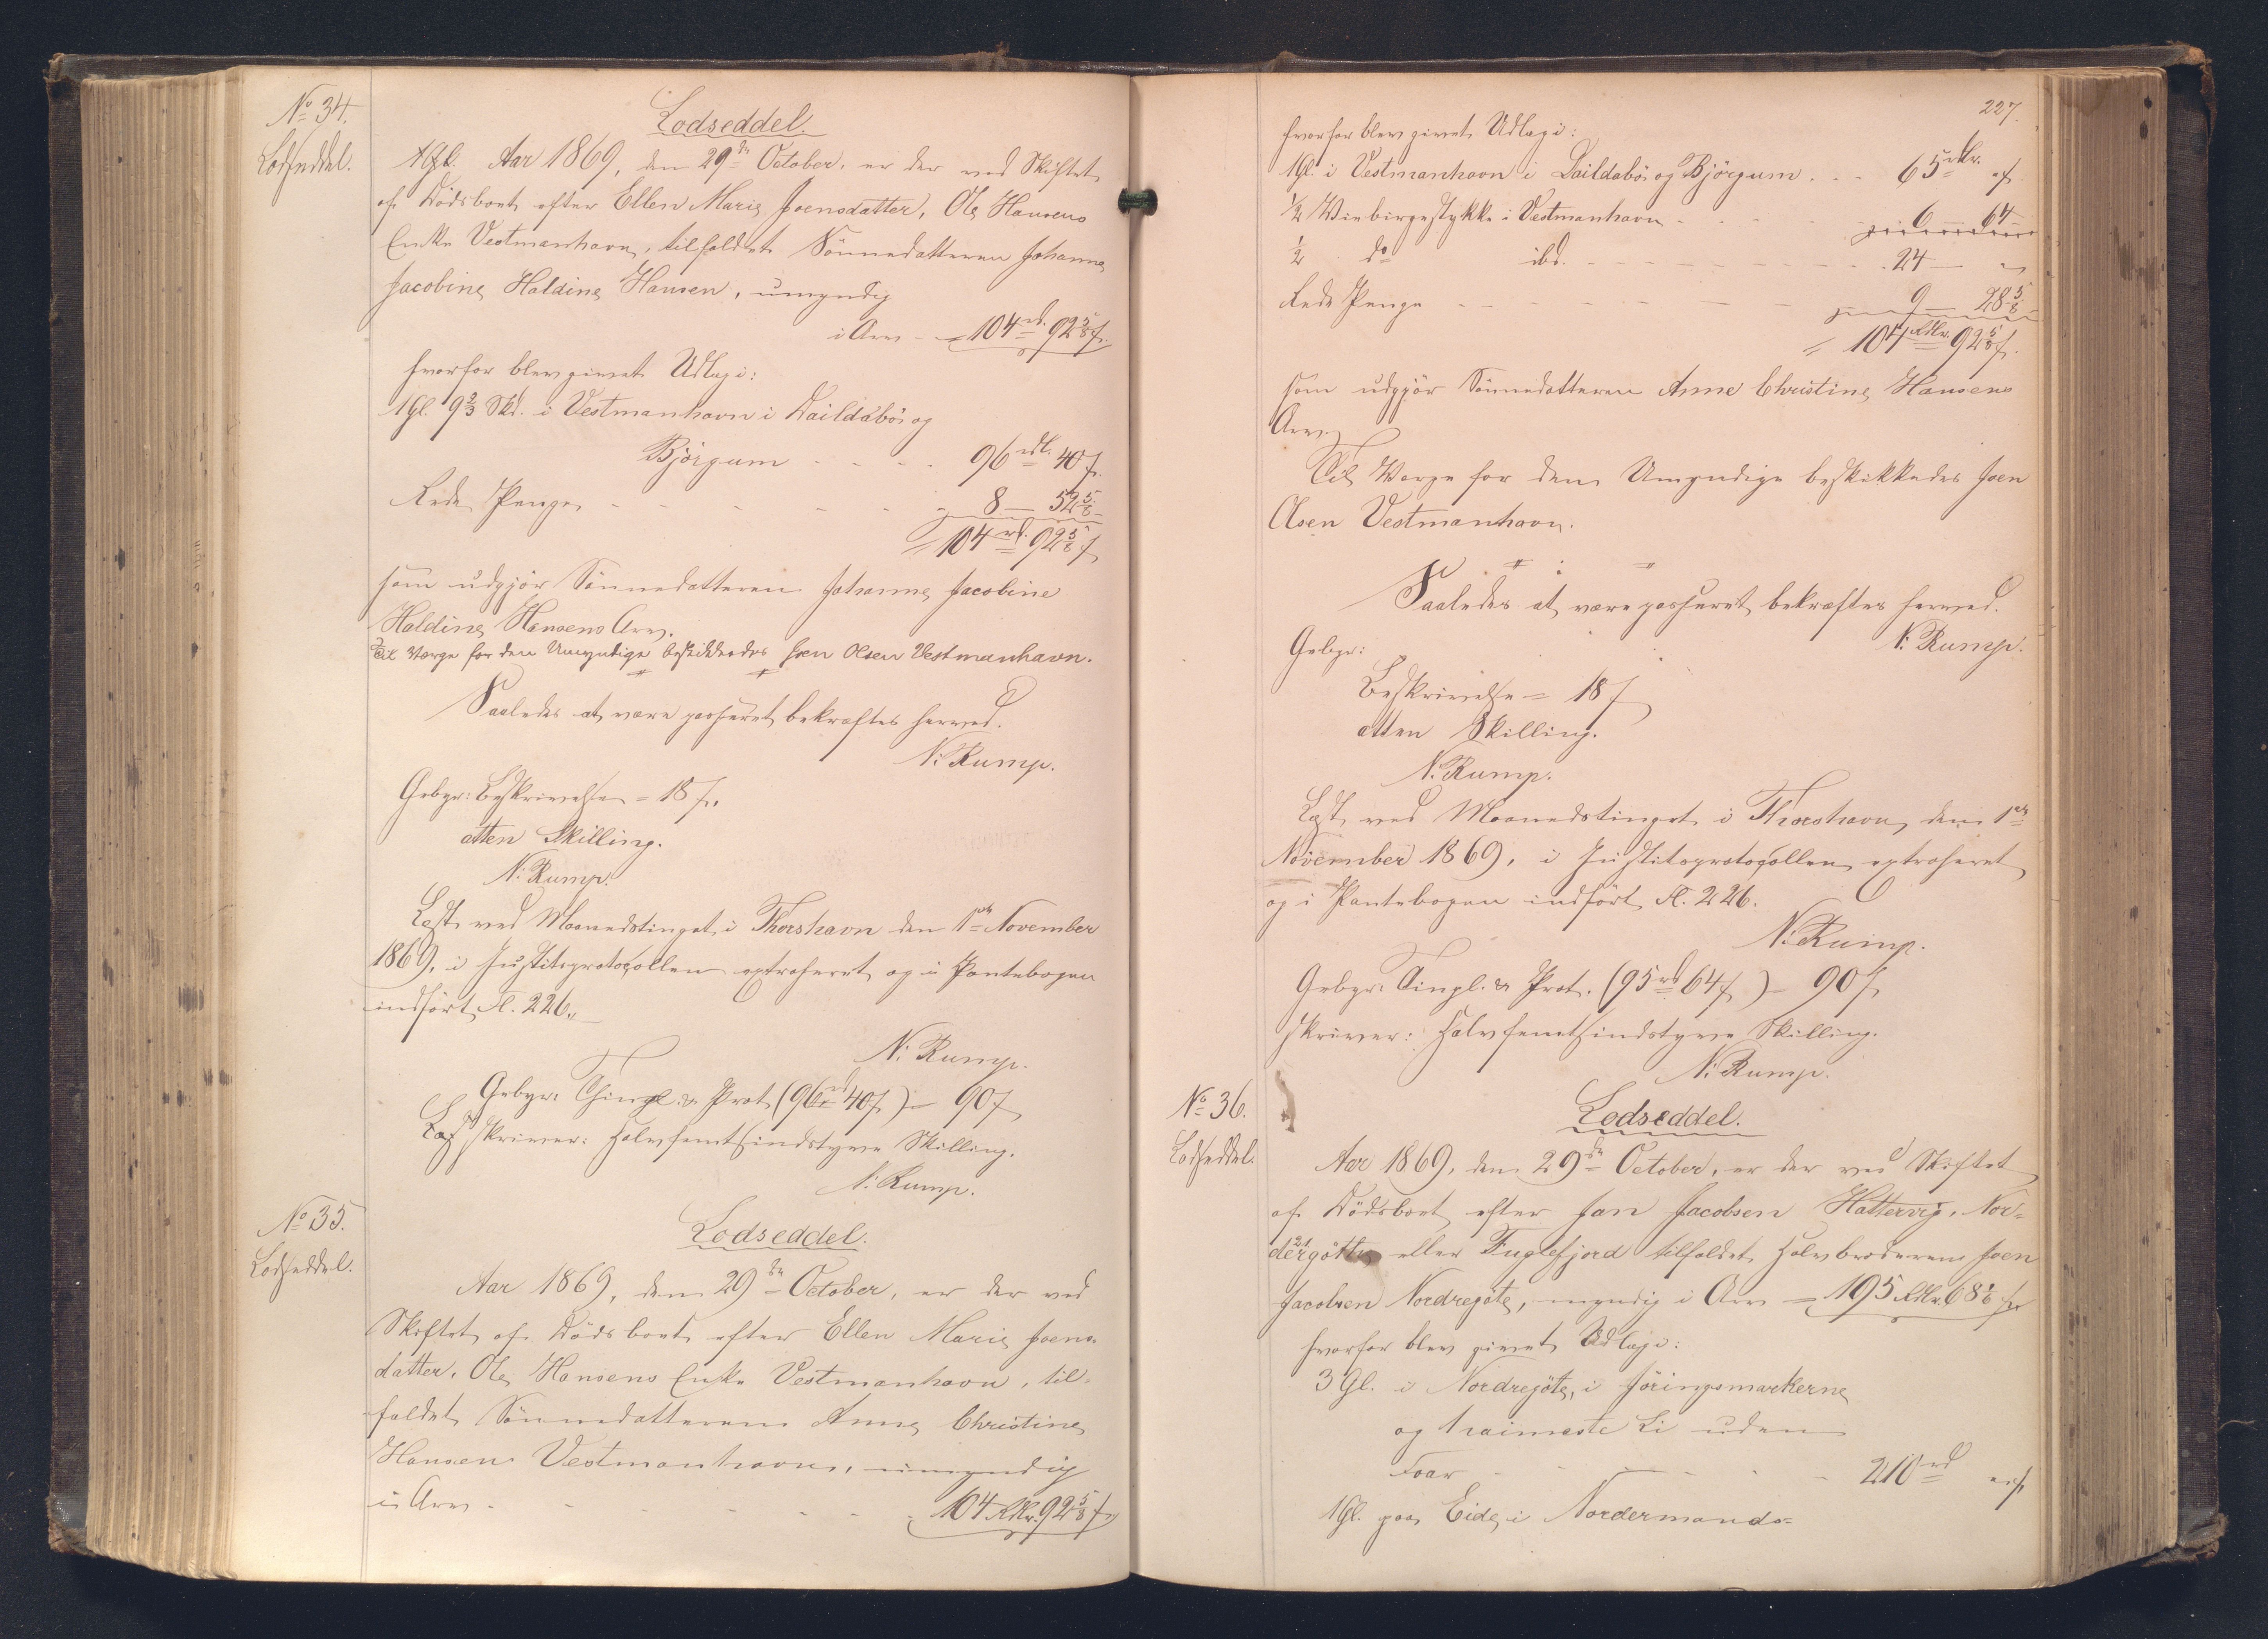 No 34.
Lodseddel.
Lodseddel.
Aar 1869, den 29de October, er der ved Skiftet
af Dödsboet efter Ellen Marie Joensdatter, Ole Hansens
Enke Vestmanhavn, tilfaldet Sönnedatteren Johanne
Jacobine Haldine Hansen, umyndig
i Arv - = 104 rd. 92 5/8 s.
hvorfor blev givet Udlæg i:
1 Gl. 9 2/3 Skd. i Vestmanhavn i Daildabö og
Björgum - - - - 96 rdl. 40 s.
Rede Penge - - - - - 8 — 52 5/8 -
= 104 rd. 92 5/8 s
som udgjör Sönnedatteren Johanne Jacobine
Haldine Hansens Arv.
Til Værge for den Umyndige beskikkedes Joen Olsen Vestmanhavn.
Saaledes at være passeret bekræftes herved.
N. Rump.
Gebyr: Beskrivelse = 18 s.
atten Skilling.
N. Rump.
Læst ved Maanedstinget i Thorshavn den 1ste November
1869, i Justitsprotocollen extraheret og i Pantebogen
indfört Fl. 226.
N. Rump.
Gebyr: Thingl. & Prot. (96 rd 40 s) - 90 s
skriver: Halvfemtsindstyve Skilling.
N. Rump.
No 35.
Lodseddel.
Lodseddel.
Aar 1869, den 29de October, er der ved
Skiftet af Dödsboet efter Ellen Marie Joens-
datter, Ole Hansens Enke Vestmanhavn, til-
faldet Sönnedatteren Anne Christine
Hansen Vestmanhavn, umyndig
i Arv - - - - - 104 Rdlr. 92 5/8 s
227.
hvorfor blev givet Udlæg i:
1 Gl. i Vestmanhavn i Daildabö og Björgum - - - 65 rdlr. " s.
1/2 i Vestmanhavn - - - - 6 — 64
1/2 do ibd. - - - - - 24 — "
Rede Penge - - - - - 9 — 28 5/8
= 104 Rdlr. 92 5/8 s.
som udgjör Sönnedatteren Anne Christine Hansens
Arv.
Til Værge for den Umyndige beskikkedes Joen
Olsen Vestmanhavn.
Saaledes at være passeret bekræftes herved.
N. Rump.
Gebyr:
Beskrivelse = 18 s
atten Skilling.
N. Rump.
Læst ved Maanedstinget i Thorshavn, den 1ste
November 1869, i Justitsprotocollen extraheret
og i Pantebogen indfört Fl. 226.
N. Rump.
Gebyr: Tingl. & Prot. (95 rd 64 s) - 90 s
skriver: Halvfemtsindstyve Skilling.
N. Rump.
No 36.
Lodseddel.
Lodseddel.
Aar 1869, den 29de October, er der ved Skiftet
af Dödsboet efter Jan Jacobsen Hattervig, Nor-
dergöthe eller Fuglefjord tilfaldet Halvbroderen Joen
Jacobsen Nordregöte, myndig i Arv = 195 Rdlr. 68
hvorfor blev givet Udlæg i:
3 Gl. i Nordregöte, i Jöringsmarkerne
og uden
Foar - - - - - - 210 rd " s
1 Gl. paa Eide i Nordermands-